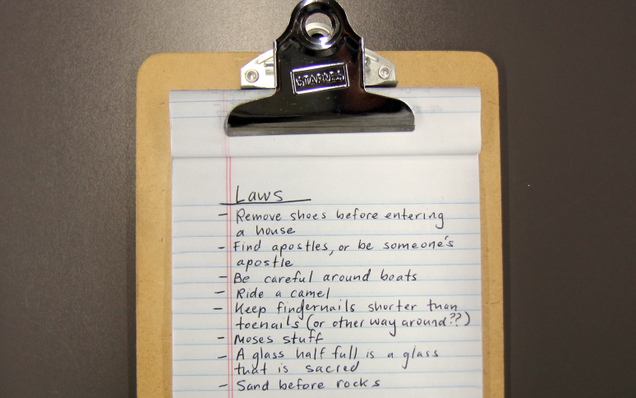 STAPLES
Laws
- Remove shoes before entering
a house
- Find apostles, or be someone's
apostle
- Be careful around boats
- Ride a camel
- Keep fingernails shorter than
toenails (or other way around??)
- Moses stuff
- A glass half full is a glass
that is sacred
- Sand before rocks